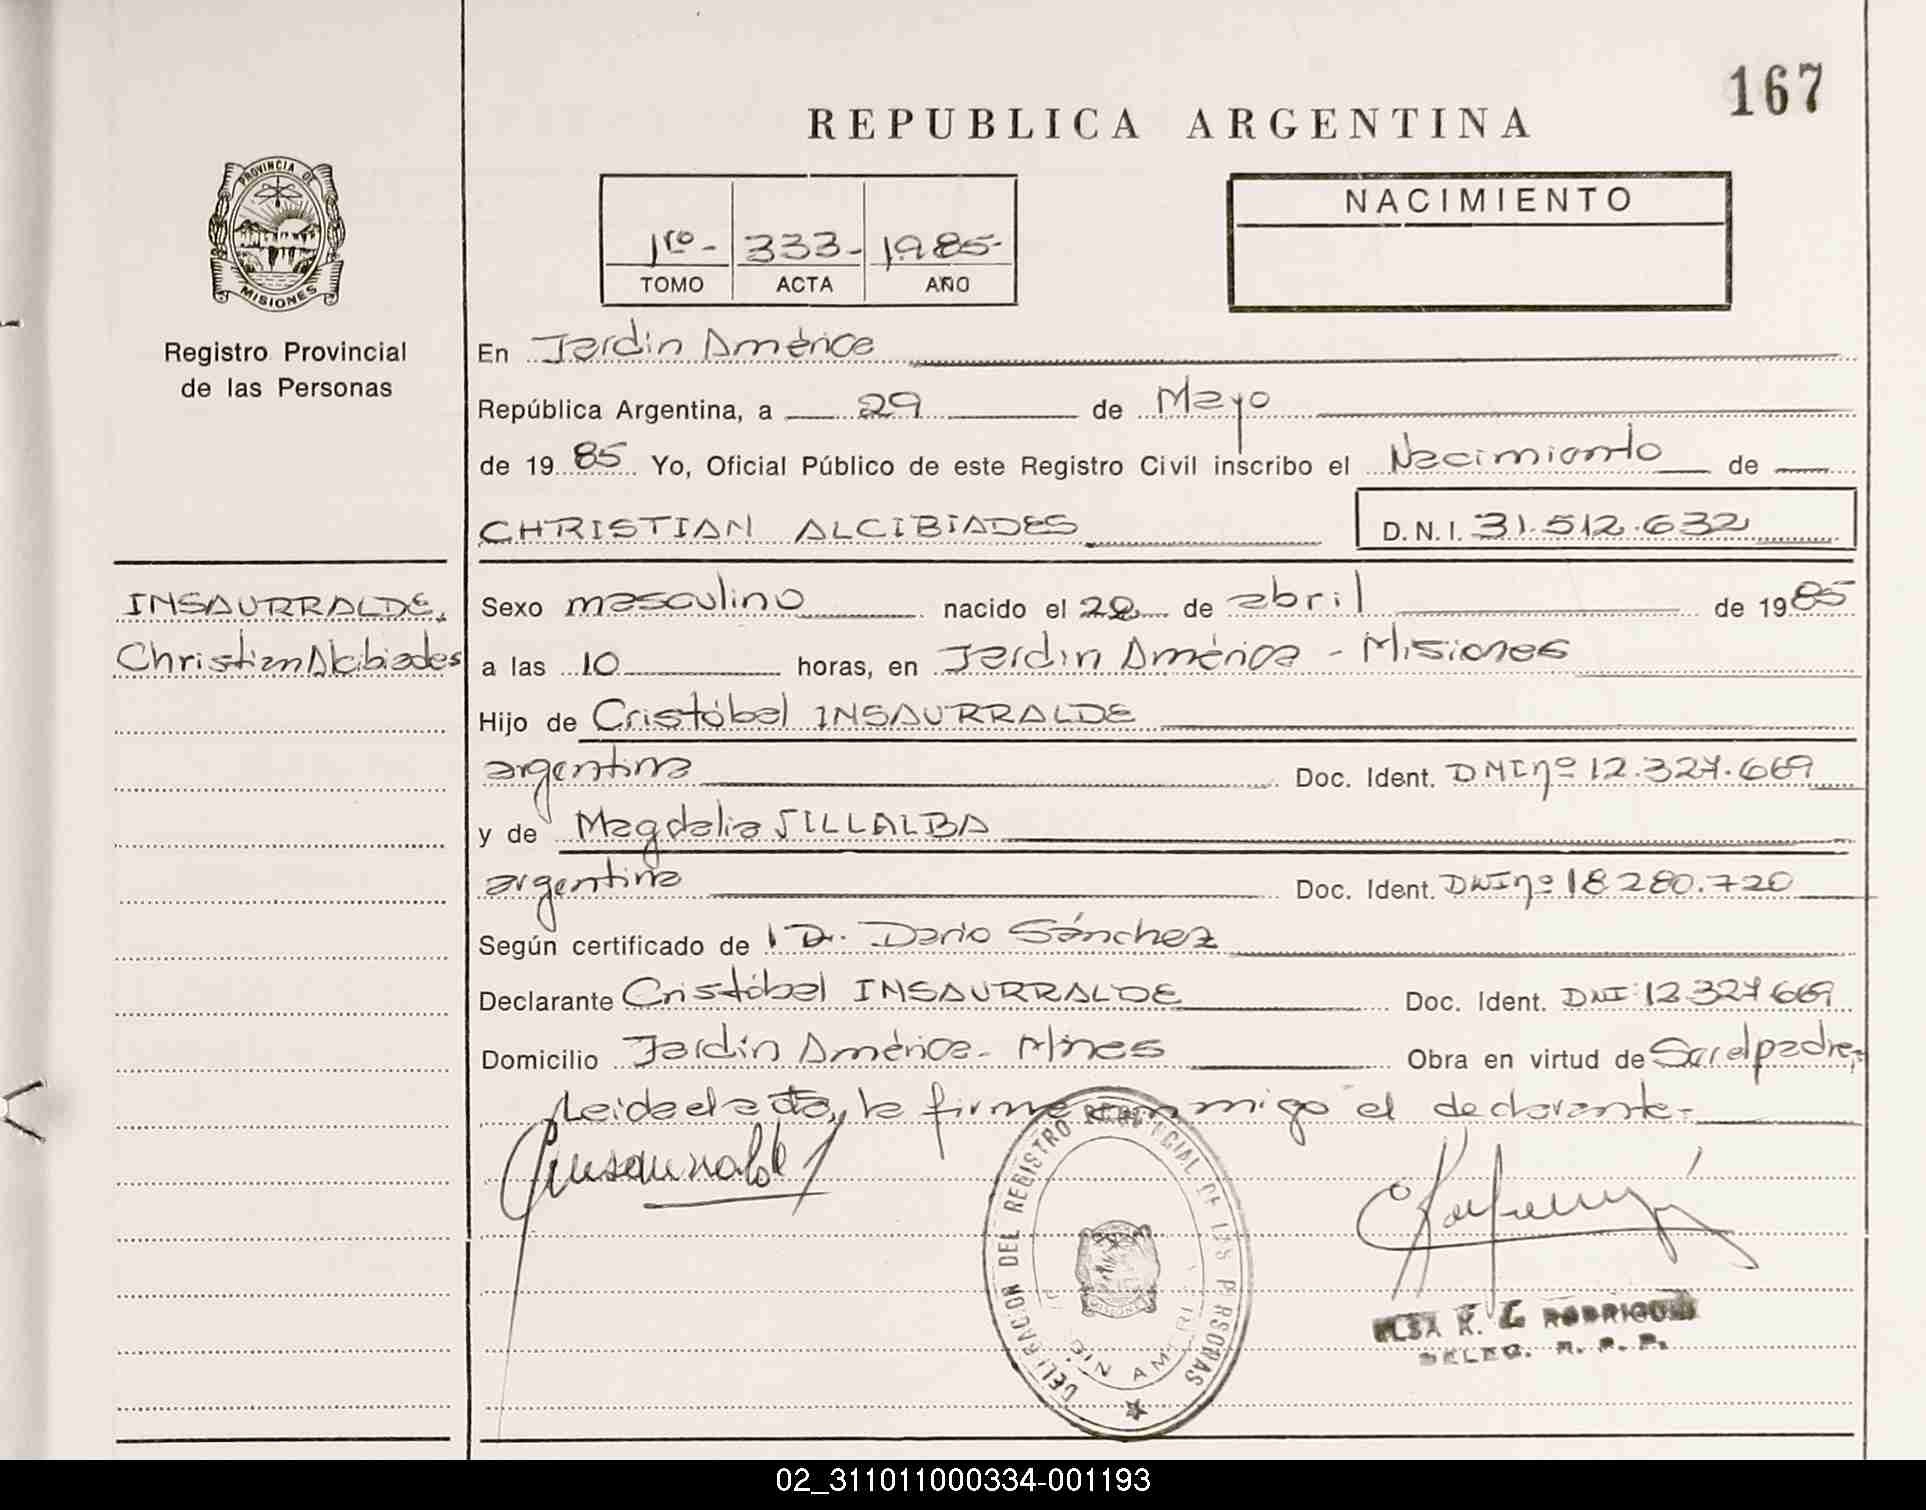 167
REPUBLICA ARGENTINA
PROVINCIA DE
MISIONES
Registro Provincial
de las Personas
1ro- 333- 1985-
TOMO ACTA AÑO
NACIMIENTO
En Jardín América
República Argentina, a 29 de Mayo
de 19 85 Yo, Oficial Público de este Registro Civil inscribo el Nacimiento de
CHRISTIAN ALCIBIADES D. N. I. 31.512.632
INSAURRALDE,
Christian Alcibiades
Sexo masculino nacido el de abril de 1985
a las 10 horas, en Jardín América - Misiones
Hijo de Cristóbal INSAURRALDE
argentina Doc. Ident. DNI nº 12.327.669
y de Magdalia VILLALBA
argentina Doc. Ident. DNI nº 18.280.720
Según certificado de Dr. Dario Sánchez
Declarante Cristóbal INSAURRALDE Doc. Ident. DNI: 12.327.669
Domicilio Jardín América - Mnes Obra en virtud de Ser el padre,-
Leida el acta, la firma conmigo el declarante.-
Insaurralde
DELEGACION DEL REGISTRO PROVINCIAL DE LAS PERSONAS
ELSA R. RODRIGUEZ
DELEG. R. P. P.
02_311011000334-001193